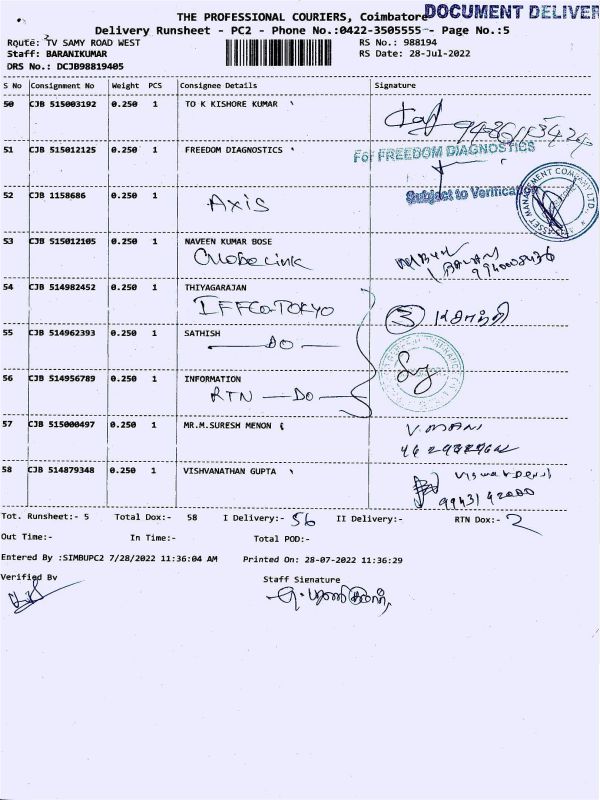 THE PROFESSIONAL COURIERS, Coimbatore
DOCUMENT DELIVER
Delivery Runsheet - PC2 - Phone No.:0422-3505555 - Page No.:5
Route: TV SAMY ROAD WEST RS No.: 988194
Staff: BARANIKUMAR RS Date: 28-Jul-2022
DRS No.: DCJB98819405
S No Consignment No Weight PCS Consignee Details Signature
50 CJB 515003192 0.250 1 TO K KISHORE KUMAR
51 CJB 515012125 0.250 1 FREEDOM DIAGNOSTICS
For FREEDOM DIAGNOSTICS
Subject to Verification
52 CJB 1158686 0.250 1 AXIS
53 CJB 515012105 0.250 1 NAVEEN KUMAR BOSE
54 CJB 514982452 0.250 1 THIYAGARAJAN
IFFCO-TOKYO
55 CJB 514962393 0.250 1 SATHISH
DO
56 CJB 514956789 0.250 1 INFORMATION
RTN — DO —
57 CJB 515000497 0.250 1 MR.M.SURESH MENON
58 CJB 514879348 0.250 1 VISHVANATHAN GUPTA
Tot. Runsheet:- 5 Total Dox:- 58 I Delivery:- 56 II Delivery:- RTN Dox:- 2
Out Time:- In Time:- Total POD:-
Entered By :SIMBUPC2 7/28/2022 11:36:04 AM Printed On: 28-07-2022 11:36:29
Verified By Staff Signature